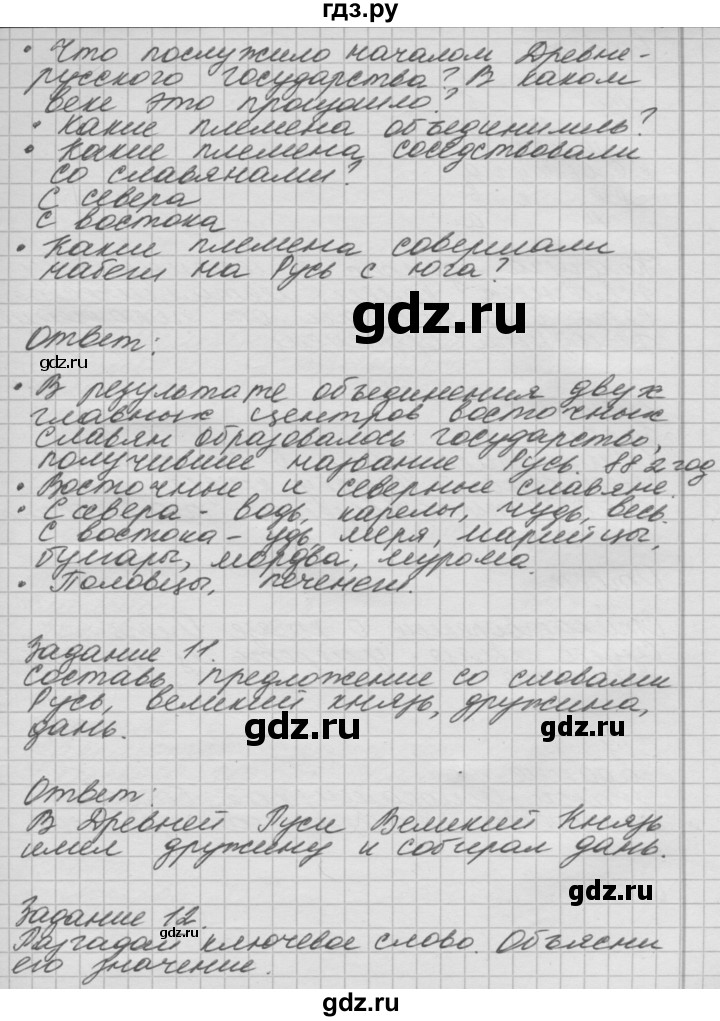 гдз.ру
• Что послужило началом Древне-
русского государства? В каком
веке это произошло?
• Какие племена объединились?
• Какие племена соседствовали
со славянами?
С севера
С востока
• Какие племена совершали
набеги на Русь с юга?
gdz.ru
Ответ:
gdz.ru
• В результате объединения двух
главных центров восточных
славян образовалось государство,
получившее название Русь. 882 год
• Восточные и северные славяне.
• С севера - водь, карелы, чудь, весь.
С востока - удь, меря, марийцы,
булгары, мордва, мурома.
• Половцы, печенеги.
Задание 11.
Составь предложение со словами
Русь, великий князь, дружина,
дань.
gdz.ru
gdz.ru
Ответ:
В Древней Руси Великий Князь
имел дружину и собирал дань.
gdz.ru
Задание 12.
gdz.ru
Разгадай ключевое слово. Объясни
его значение.
gdz.ru